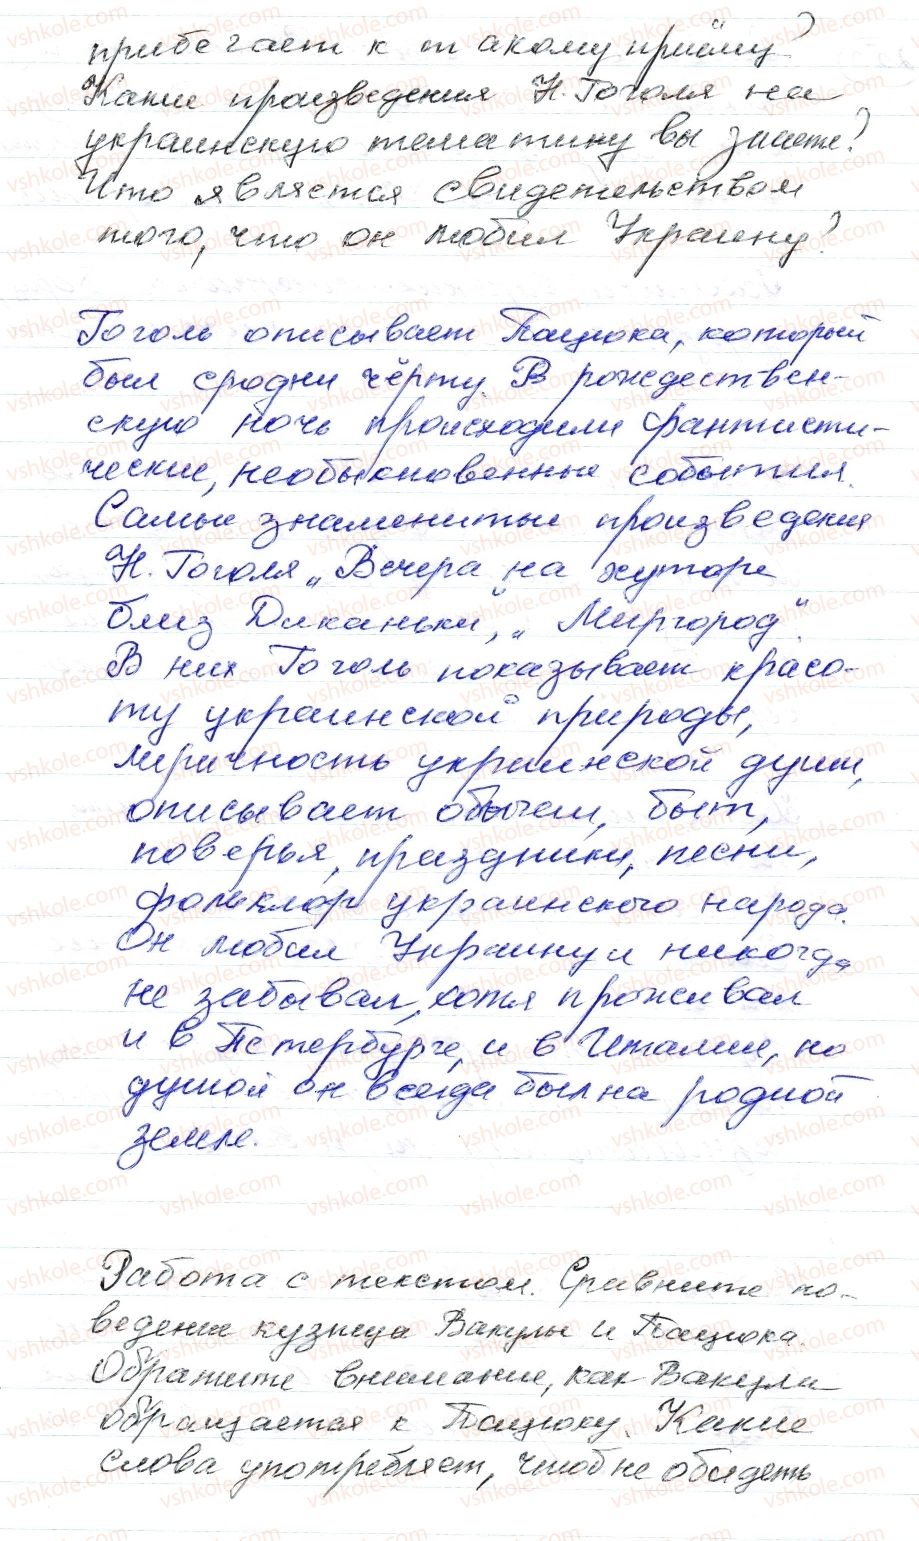 прибегает к такому приёму?
Какие произведения Н. Гоголя на
украинскую тематику вы знаете?
Что является свидетельством
того, что он любил Украину?
Гоголь описывает Пацюка, который
был сродни чёрту. В рождествен-
скую ночь происходили фантасти-
ческие, необыкновенные события.
Самые знаменитые произведения
Н. Гоголя „Вечера на хуторе
близ Диканьки", „Миргород".
В них Гоголь показывает красо-
ту украинской природы,
лиричность украинской души,
описывает обычаи, быт,
поверья, праздники, песни,
фольклор украинского народа.
Он любил Украину и никогда
не забывал, хотя проживал
и в Петербурге, и в Италии, но
душой он всегда был на родной
земле.
Работа с текстом. Сравните по-
ведение кузнеца Вакулы и Пацюка.
Обратите внимание, как Вакула
обращается к Пацюку. Какие
слова употребляет, чтоб не обидеть